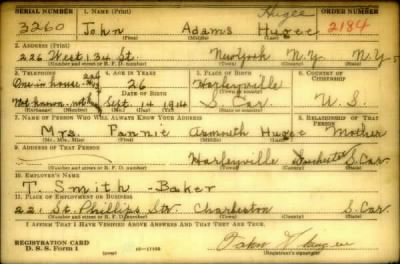 SERIAL NUMBER 1. NAME (Print) Hugee ORDER NUMBER
3260 John Adams Huget 2184
2. ADDRESS (Print)
226 West 134 St. New York N.Y. N.Y.
(Number and street or R. F. D. number) (Town) (County) (State)
3. TELEPHONE 4. AGE IN YEARS 5. PLACE OF BIRTH 6. COUNTRY OF CITIZENSHIP
One in house 26 Harleyville
DATE OF BIRTH
Not known Sept. 14 1914 S. Car. U. S.
(Exchange) (Number) (Mo.) (Day) (Yr.) (State or country)
7. NAME OF PERSON WHO WILL ALWAYS KNOW YOUR ADDRESS 8. RELATIONSHIP OF THAT PERSON
Mrs. Fannie Huget Mother
9. ADDRESS OF THAT PERSON
Harleyville Dorchester S. Car
(Number and street or R. F. D. number) (Town) (County) (State)
10. EMPLOYER'S NAME
T. Smith - Baker
11. PLACE OF EMPLOYMENT OR BUSINESS
221 St. Phillips Str. Charleston S. Car
(Number and street or R. F. D. number) (Town) (County) (State)
I AFFIRM THAT I HAVE VERIFIED ABOVE ANSWERS AND THAT THEY ARE TRUE.
REGISTRATION CARD
D. S. S. Form 1 John
(over) (Registrant's signature)